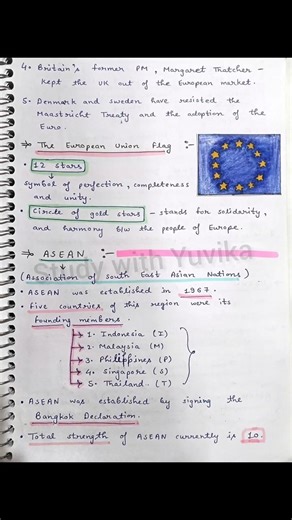 4. Britain's former PM, Margaret Thatcher -
kept the UK out of the European market.
5. Denmark and sweden have resisted the
Maastricht Treaty and the adoption of the
Euro.
⇒ The European Union Flag :-
• 12 stars
↓
symbol of perfection, completeness
and unity.
• Circle of gold stars - stands for solidarity,
and harmony b/w the people of Europe.
⇒ ASEAN :-
Study with Yuvika
↓
(Association of south East Asian Nations)
• ASEAN was established in 1967.
• Five countries of this region were its
founding members.
→ 1. Indonesia (I)
→ 2. Malaysia (M)
→ 3. Philippines (P)
→ 4. Singapore (S)
→ 5. Thailand. (T)
• ASEAN was established by signing the
Bangkok Declaration.
• Total strength of ASEAN currently is 10.